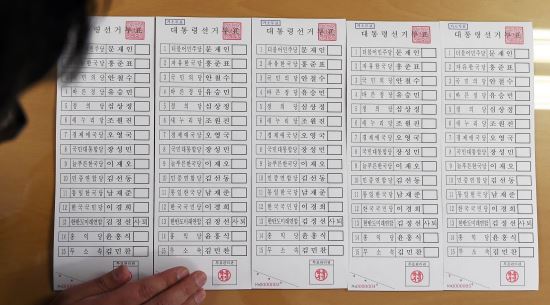 대통령선거투표
더불어민주당 문재인
자유한국당 홍준표
3 국민의당 안철수
4 바른정당 유승민
5 정의당 심상정
6 새누리당 조원진
7 경제애국당 오영국
8 국민대통합당 장성민
9 늘푸른한국당 이재오
10 민중연합당 김선동
11 통일한국당 남재준
12 한국국민당 이경희
13 한반도미래연합 김정선 사퇴
14 홍익당 윤홍식
15 무소속 김민찬
대통령선거투표
1 더불어민주당 문재인
2 자유한국당 홍준표
3 국민의당 안철수
4 바른정당 유승민
5 정의당 심상정
6 새누리당 조원진
7 경제애국당 오영국
8 국민대통합당 장성민
9 늘푸른한국당 이재오
10 민중연합당 김선동
11 통일한국당 남재준
12 한국국민당 이경희
13 한반도미래연합 김정선 사퇴
14 홍익당 윤홍식
15 무소속 김민찬
투표관리관
대통령선거투표
1 더불어민주당 문재인
2 자유한국당 홍준표
3 국민의당 안철수
4 바른정당 유승민
5 정의당 심상정
6 새누리당 조원진
7 경제애국당 오영국
8 국민대통합당 장성민
9 늘푸른한국당 이재오
10 민중연합당 김선동
11 통일한국당 남재준
12 한국국민당 이경희
13 한반도미래연합 김정선 사퇴
14 홍익당 윤홍식
15 무소속 김민찬
투표관리관
№0000003
대통령선거투표
1 더불어민주당 문재인
2 자유한국당 홍준표
3 국민의당 안철수
4 바른정당 유승민
5 정의당 심상정
6 새누리당 조원진
7 경제애국당 오영국
8 국민대통합당 장성민
9 늘푸른한국당 이재오
10 민중연합당 김선동
11 통일한국당 남재준
12 한국국민당 이경희
13 한반도미래연합 김정선 사퇴
14 홍익당 윤홍식
15 무소속 김민찬
투표관리관
№0000004
대통령선거투표
1 더불어민주당 문재인
2 자유한국당 홍준표
3 국민의당 안철수
4 바른정당 유승민
5 정의당 심상정
6 새누리당 조원진
7 경제애국당 오영국
8 국민대통합당 장성민
9 늘푸른한국당 이재오
10 민중연합당 김선동
11 통일한국당 남재준
12 한국국민당 이경희
13 한반도미래연합 김정선 사퇴
14 홍익당 윤홍식
15 무소속 김민찬
투표관리관
№0000005